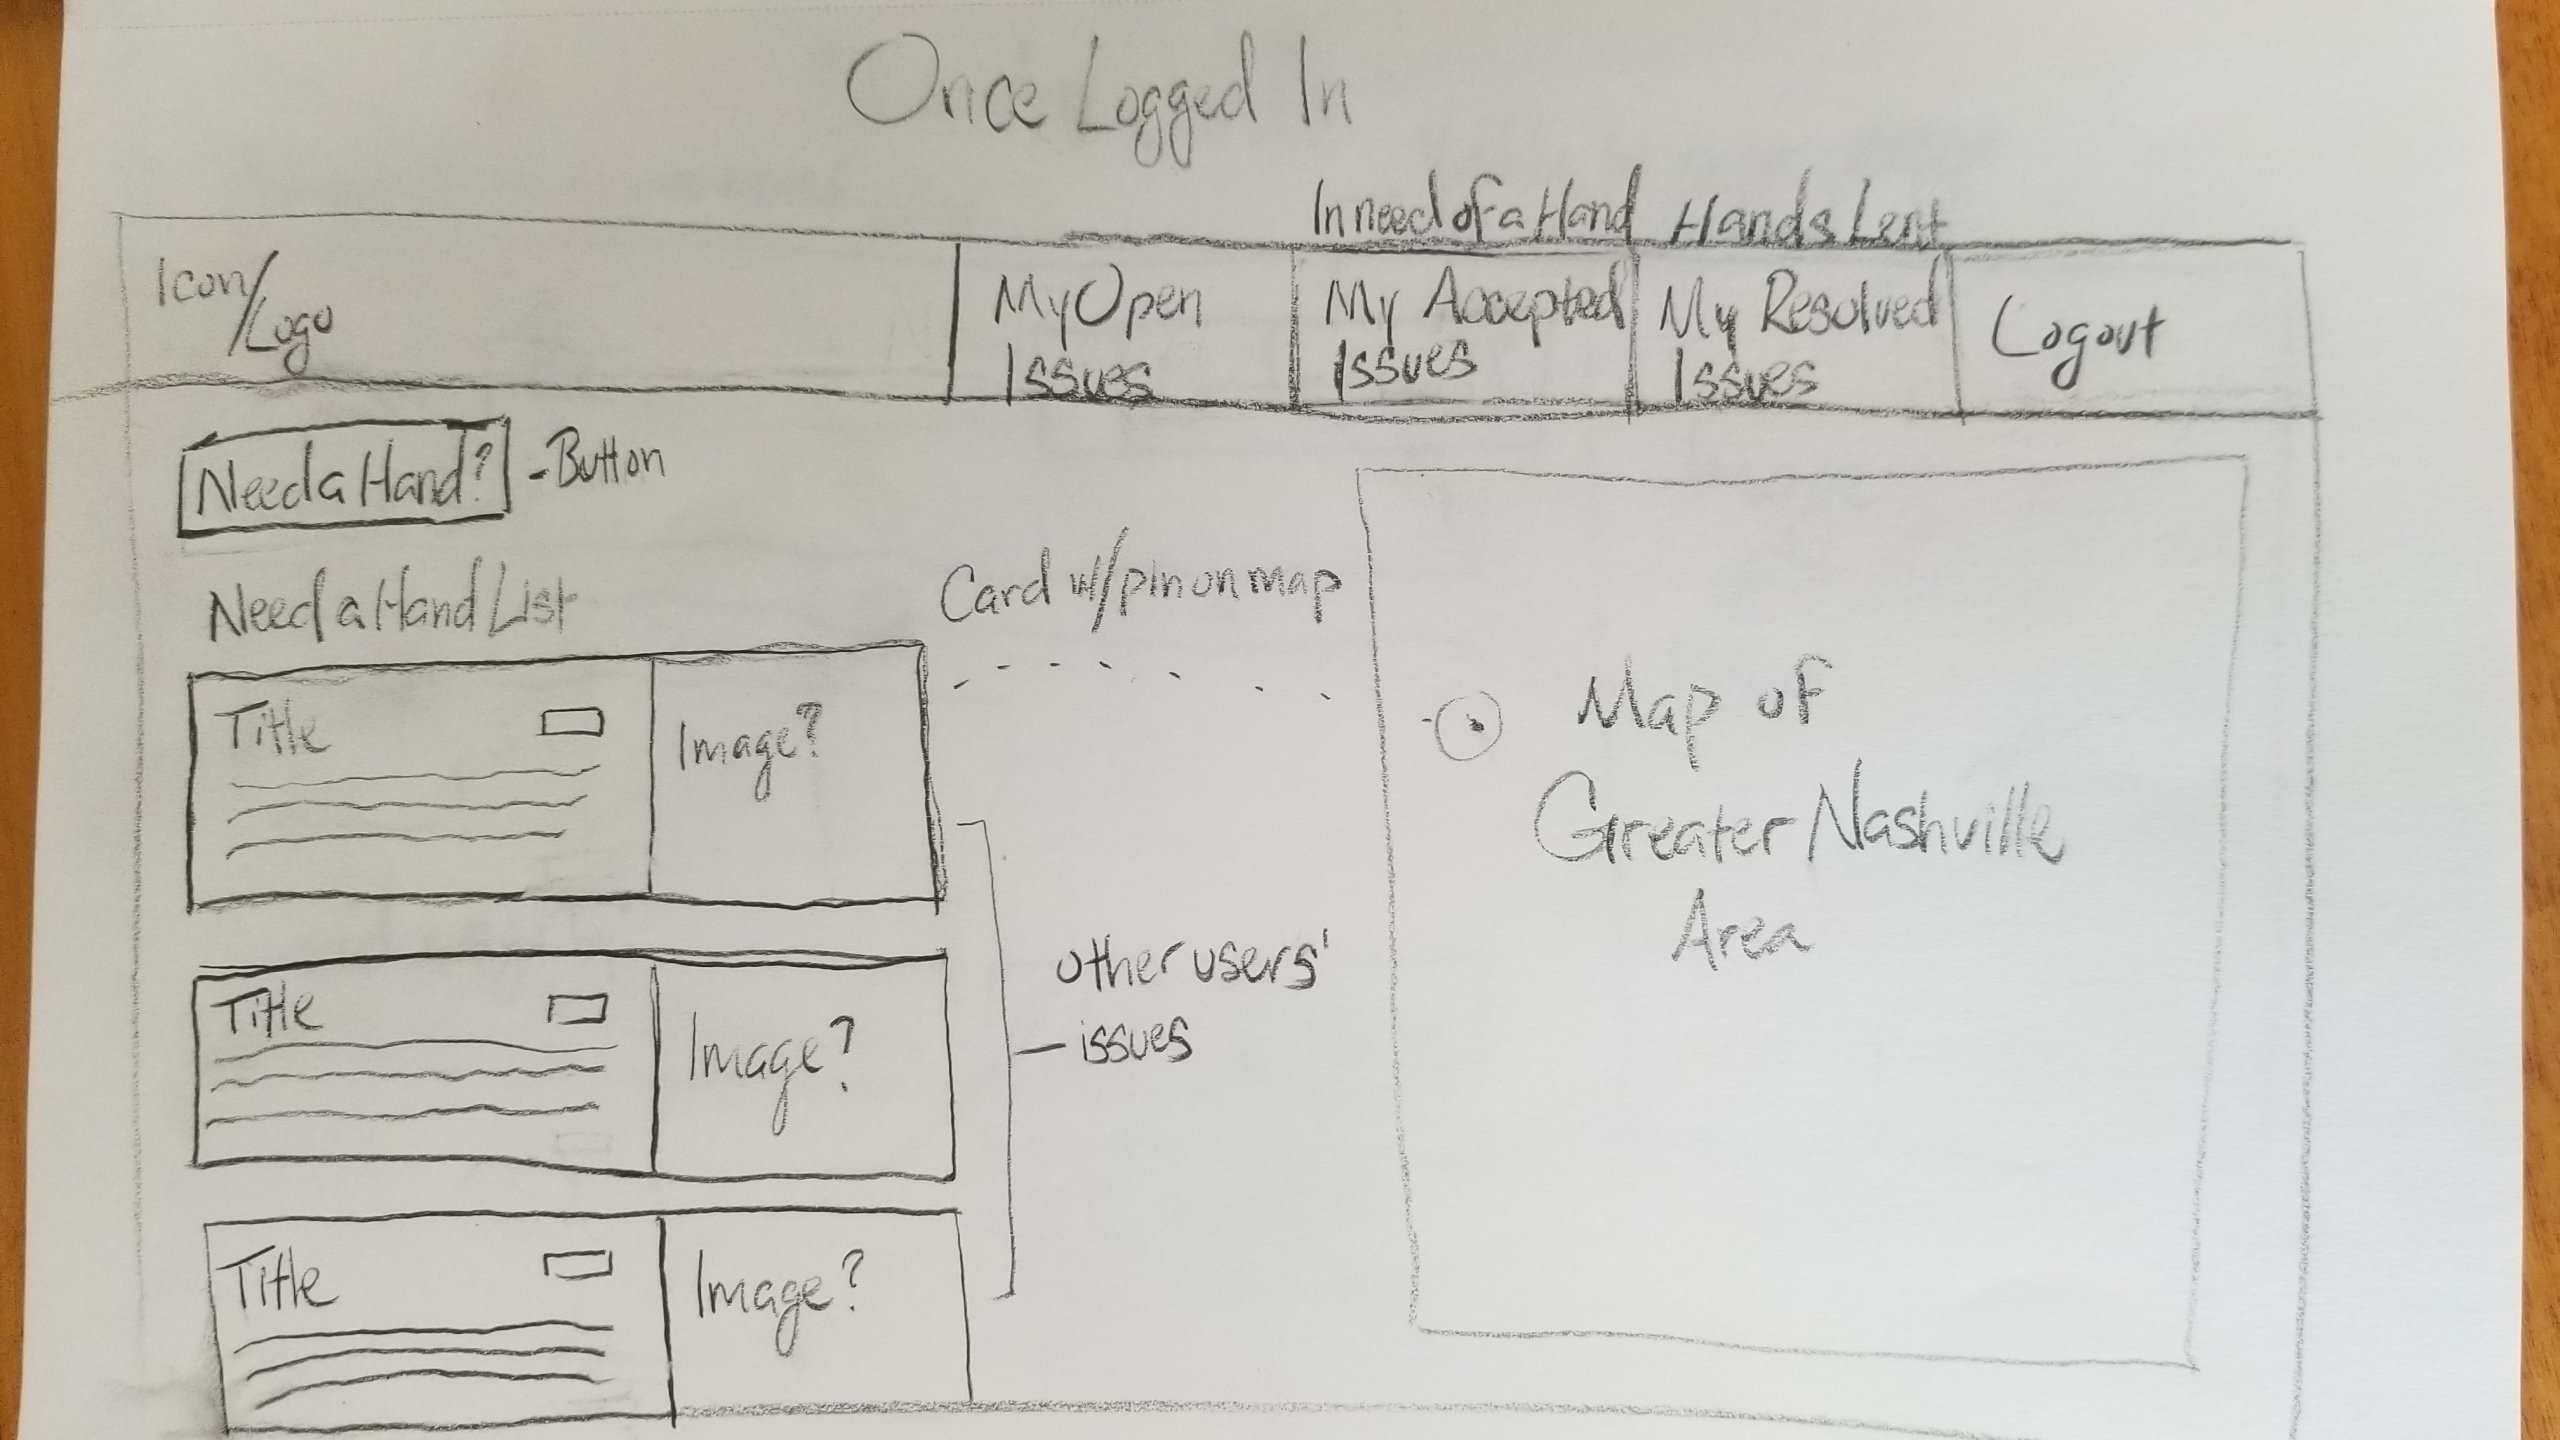 Once Logged In
In need of a Hand
Hands Lent
Icon/
Logo
My Open
Issues
My Accepted
Issues
My Resolved
Issues
Logout
Need a Hand?
-Button
Need a Hand List
Card w/pin on map
Title
Image?
Map of
Greater Nashville
Area
other users'
- issues
Title
Image?
Title
Image?